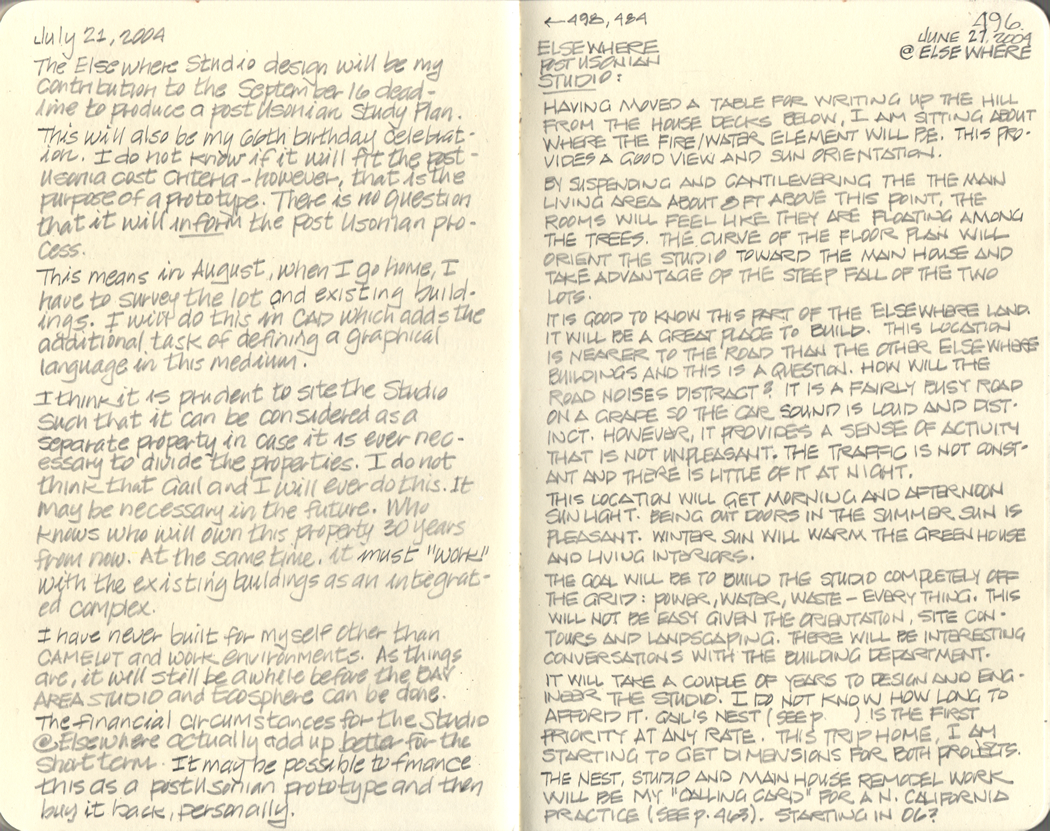 July 21, 2004
The Elsewhere Studio design will be my
contribution to the September 16 dead-
line to produce a post Usonian Study Plan.
This will also be my 66th birthday celebrat-
ion. I do not know if it will fit the post-
Usonia cost criteria - however, that is the
purpose of a prototype. There is no question
that it will inform the post Usonian pro-
cess.
This means in August, when I go home, I
have to survey the lot and existing build-
ings. I will do this in CAD which adds the
additional task of defining a graphical
language in this medium.
I think it is prudent to site the Studio
such that it can be considered as a
separate property in case it is ever nec-
essary to divide the properties. I do not
think that Gail and I will ever do this. It
may be necessary in the future. Who
knows who will own this property 30 years
from now. At the same time, it must "work"
with the existing buildings as an integrat-
ed complex.
I have never built for myself other than
CAMELOT and work environments. As things
are, it will still be awhile before the BAY
AREA STUDIO and Ecosphere can be done.
The financial circumstances for the Studio
@Elsewhere actually add up better for the
short term. It may be possible to finance
this as a post Usonian prototype and then
buy it back, personally.
←498, 484
496.
JUNE 27, 2004
@ ELSEWHERE
ELSEWHERE
POST USONIAN
STUDIO:
HAVING MOVED A TABLE FOR WRITING UP THE HILL
FROM THE HOUSE DECKS BELOW, I AM SITTING ABOUT
WHERE THE FIRE/WATER ELEMENT WILL BE. THIS PRO-
VIDES A GOOD VIEW AND SUN ORIENTATION.
BY SUSPENDING AND CANTILEVERING THE THE MAIN
LIVING AREA ABOUT FT ABOVE THIS POINT, THE
ROOMS WILL FEEL LIKE THEY ARE FLOATING AMONG
THE TREES. THE CURVE OF THE FLOOR PLAN WILL
ORIENT THE STUDIO TOWARD THE MAIN HOUSE AND
TAKE ADVANTAGE OF THE STEEP FALL OF THE TWO
LOTS.
IT IS GOOD TO KNOW THIS PART OF THE ELSEWHERE LAND.
IT WILL BE A GREAT PLACE TO BUILD. THIS LOCATION
IS NEARER TO THE ROAD THAN THE OTHER ELSEWHERE
BUILDINGS AND THIS IS A QUESTION. HOW WILL THE
ROAD NOISES DISTRACT? IT IS A FAIRLY BUSY ROAD
ON A GRADE SO THE CAR SOUND IS LOUD AND DIST-
INCT. HOWEVER, IT PROVIDES A SENSE OF ACTIVITY
THAT IS NOT UNPLEASANT. THE TRAFFIC IS NOT CONST-
ANT AND THERE IS LITTLE OF IT AT NIGHT.
THIS LOCATION WILL GET MORNING AND AFTERNOON
SUNLIGHT. BEING OUT DOORS IN THE SUMMER SUN IS
PLEASANT. WINTER SUN WILL WARM THE GREENHOUSE
AND LIVING INTERIORS.
THE GOAL WILL BE TO BUILD THE STUDIO COMPLETELY OFF
THE GRID: POWER, WATER, WASTE - EVERYTHING. THIS
WILL NOT BE EASY GIVEN THE ORIENTATION, SITE CON-
TOURS AND LANDSCAPING. THERE WILL BE INTERESTING
CONVERSATIONS WITH THE BUILDING DEPARTMENT.
IT WILL TAKE A COUPLE OF YEARS TO DESIGN AND ENG-
INEER THE STUDIO. I DO NOT KNOW HOW LONG TO
AFFORD IT. GAIL'S NEST (SEE P. ) IS THE FIRST
PRIORITY AT ANY RATE. THIS TRIP HOME, I AM
STARTING TO GET DIMENSIONS FOR BOTH PROJECTS.
THE NEST, STUDIO AND MAIN HOUSE REMODEL WORK
WILL BE MY "CALLING CARD" FOR A N. CALIFORNIA
PRACTICE (SEE P. 463). STARTING IN 06?